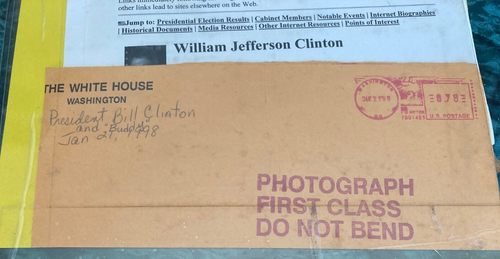 other links lead to sites elsewhere on the Web.
Jump to: Presidential Election Results | Cabinet Members | Notable Events | Internet Biographies
| Historical Documents | Media Resources | Other Internet Resources | Points of Interest
William Jefferson Clinton
THE WHITE HOUSE
WASHINGTON
President Bill Clinton
and "Buddy"
Jan 21, 1998
WASHINGTON
U.S. POSTAGE
PHOTOGRAPH
FIRST CLASS
DO NOT BEND